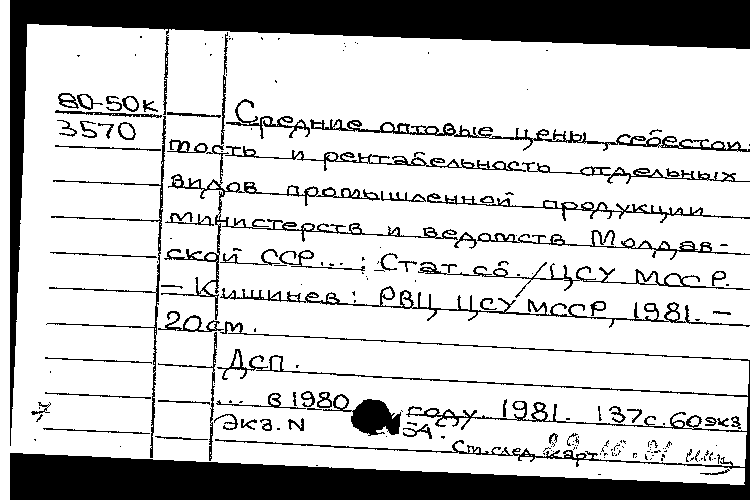 80-50к
3570
Средние оптовые цены, себестои-
мость и рентабельность отдельных
видов промышленной продукции
министерств и ведомств Молдав-
ской ССР...: Стат. сб. / ЦСУ МССР.
– Кишинев: РВЦ ЦСУ МССР, 1981. –
20 см.
Дсп.
... в 1980 году. 1981. 137 с. 60 экз
Экз. N 34.
См. след. карт